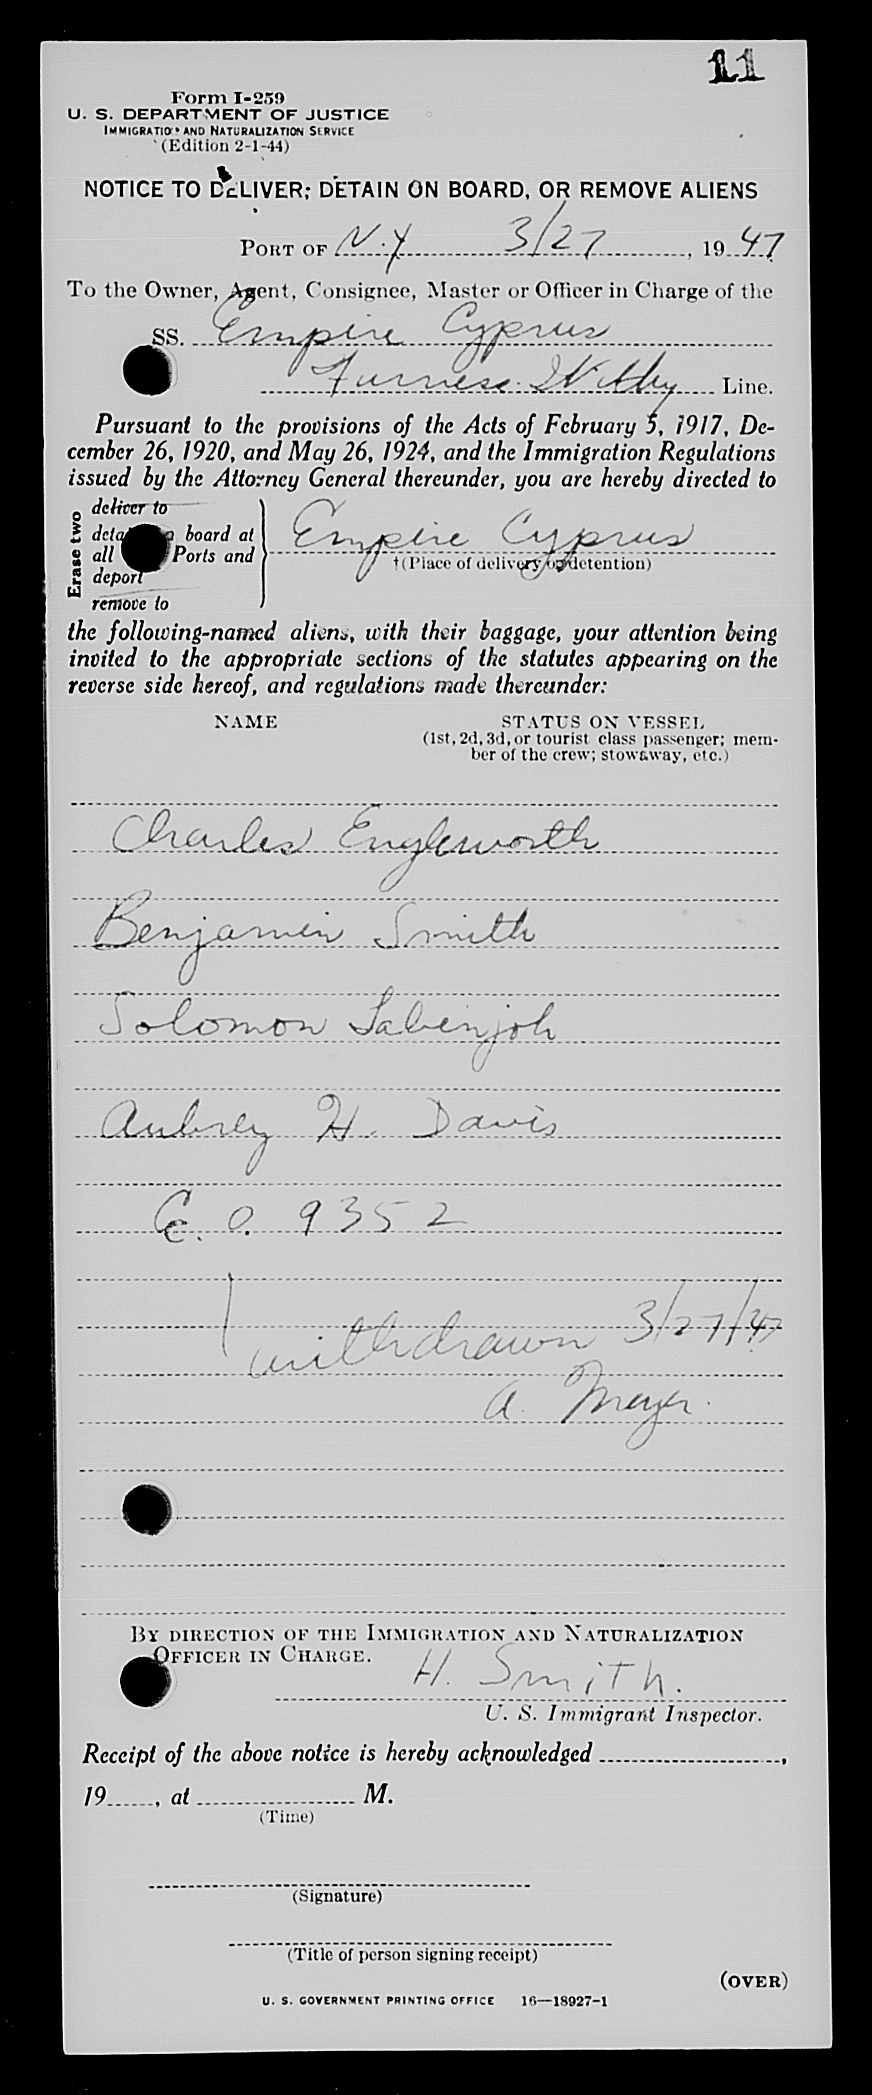 11
Form I-259
U. S. DEPARTMENT OF JUSTICE
IMMIGRATION AND NATURALIZATION SERVICE
(Edition 2-1-44)
NOTICE TO DELIVER; DETAIN ON BOARD, OR REMOVE ALIENS
PORT OF N.Y. 3/27, 19 47
To the Owner, Agent, Consignee, Master or Officer in Charge of the
SS. Empire Cyprus
Furness Withy Line.
Pursuant to the provisions of the Acts of February 5, 1917, De-
cember 26, 1920, and May 26, 1924, and the Immigration Regulations
issued by the Attorney General thereunder, you are hereby directed to
Erase two
deliver to
board at
all Ports and
deport
remove to
Empire Cyprus
†(Place of delivery or detention)
the following-named aliens, with their baggage, your attention being
invited to the appropriate sections of the statutes appearing on the
reverse side hereof, and regulations made thereunder:
NAME STATUS ON VESSEL
(1st, 2d, 3d, or tourist class passenger; mem-
ber of the crew; stowaway, etc.)
Charles Engleworth
Benjamin Smith
Solomon Labenjoh
Aubrey H. Davis
E. O. 9352
withdrawn 3/27/47
A. Meyer.
BY DIRECTION OF THE IMMIGRATION AND NATURALIZATION
OFFICER IN CHARGE.
H. Smith.
U. S. Immigrant Inspector.
Receipt of the above notice is hereby acknowledged ,
19 , at M.
(Time)
(Signature)
(Title of person signing receipt)
(OVER)
U. S. GOVERNMENT PRINTING OFFICE 16—18927-1